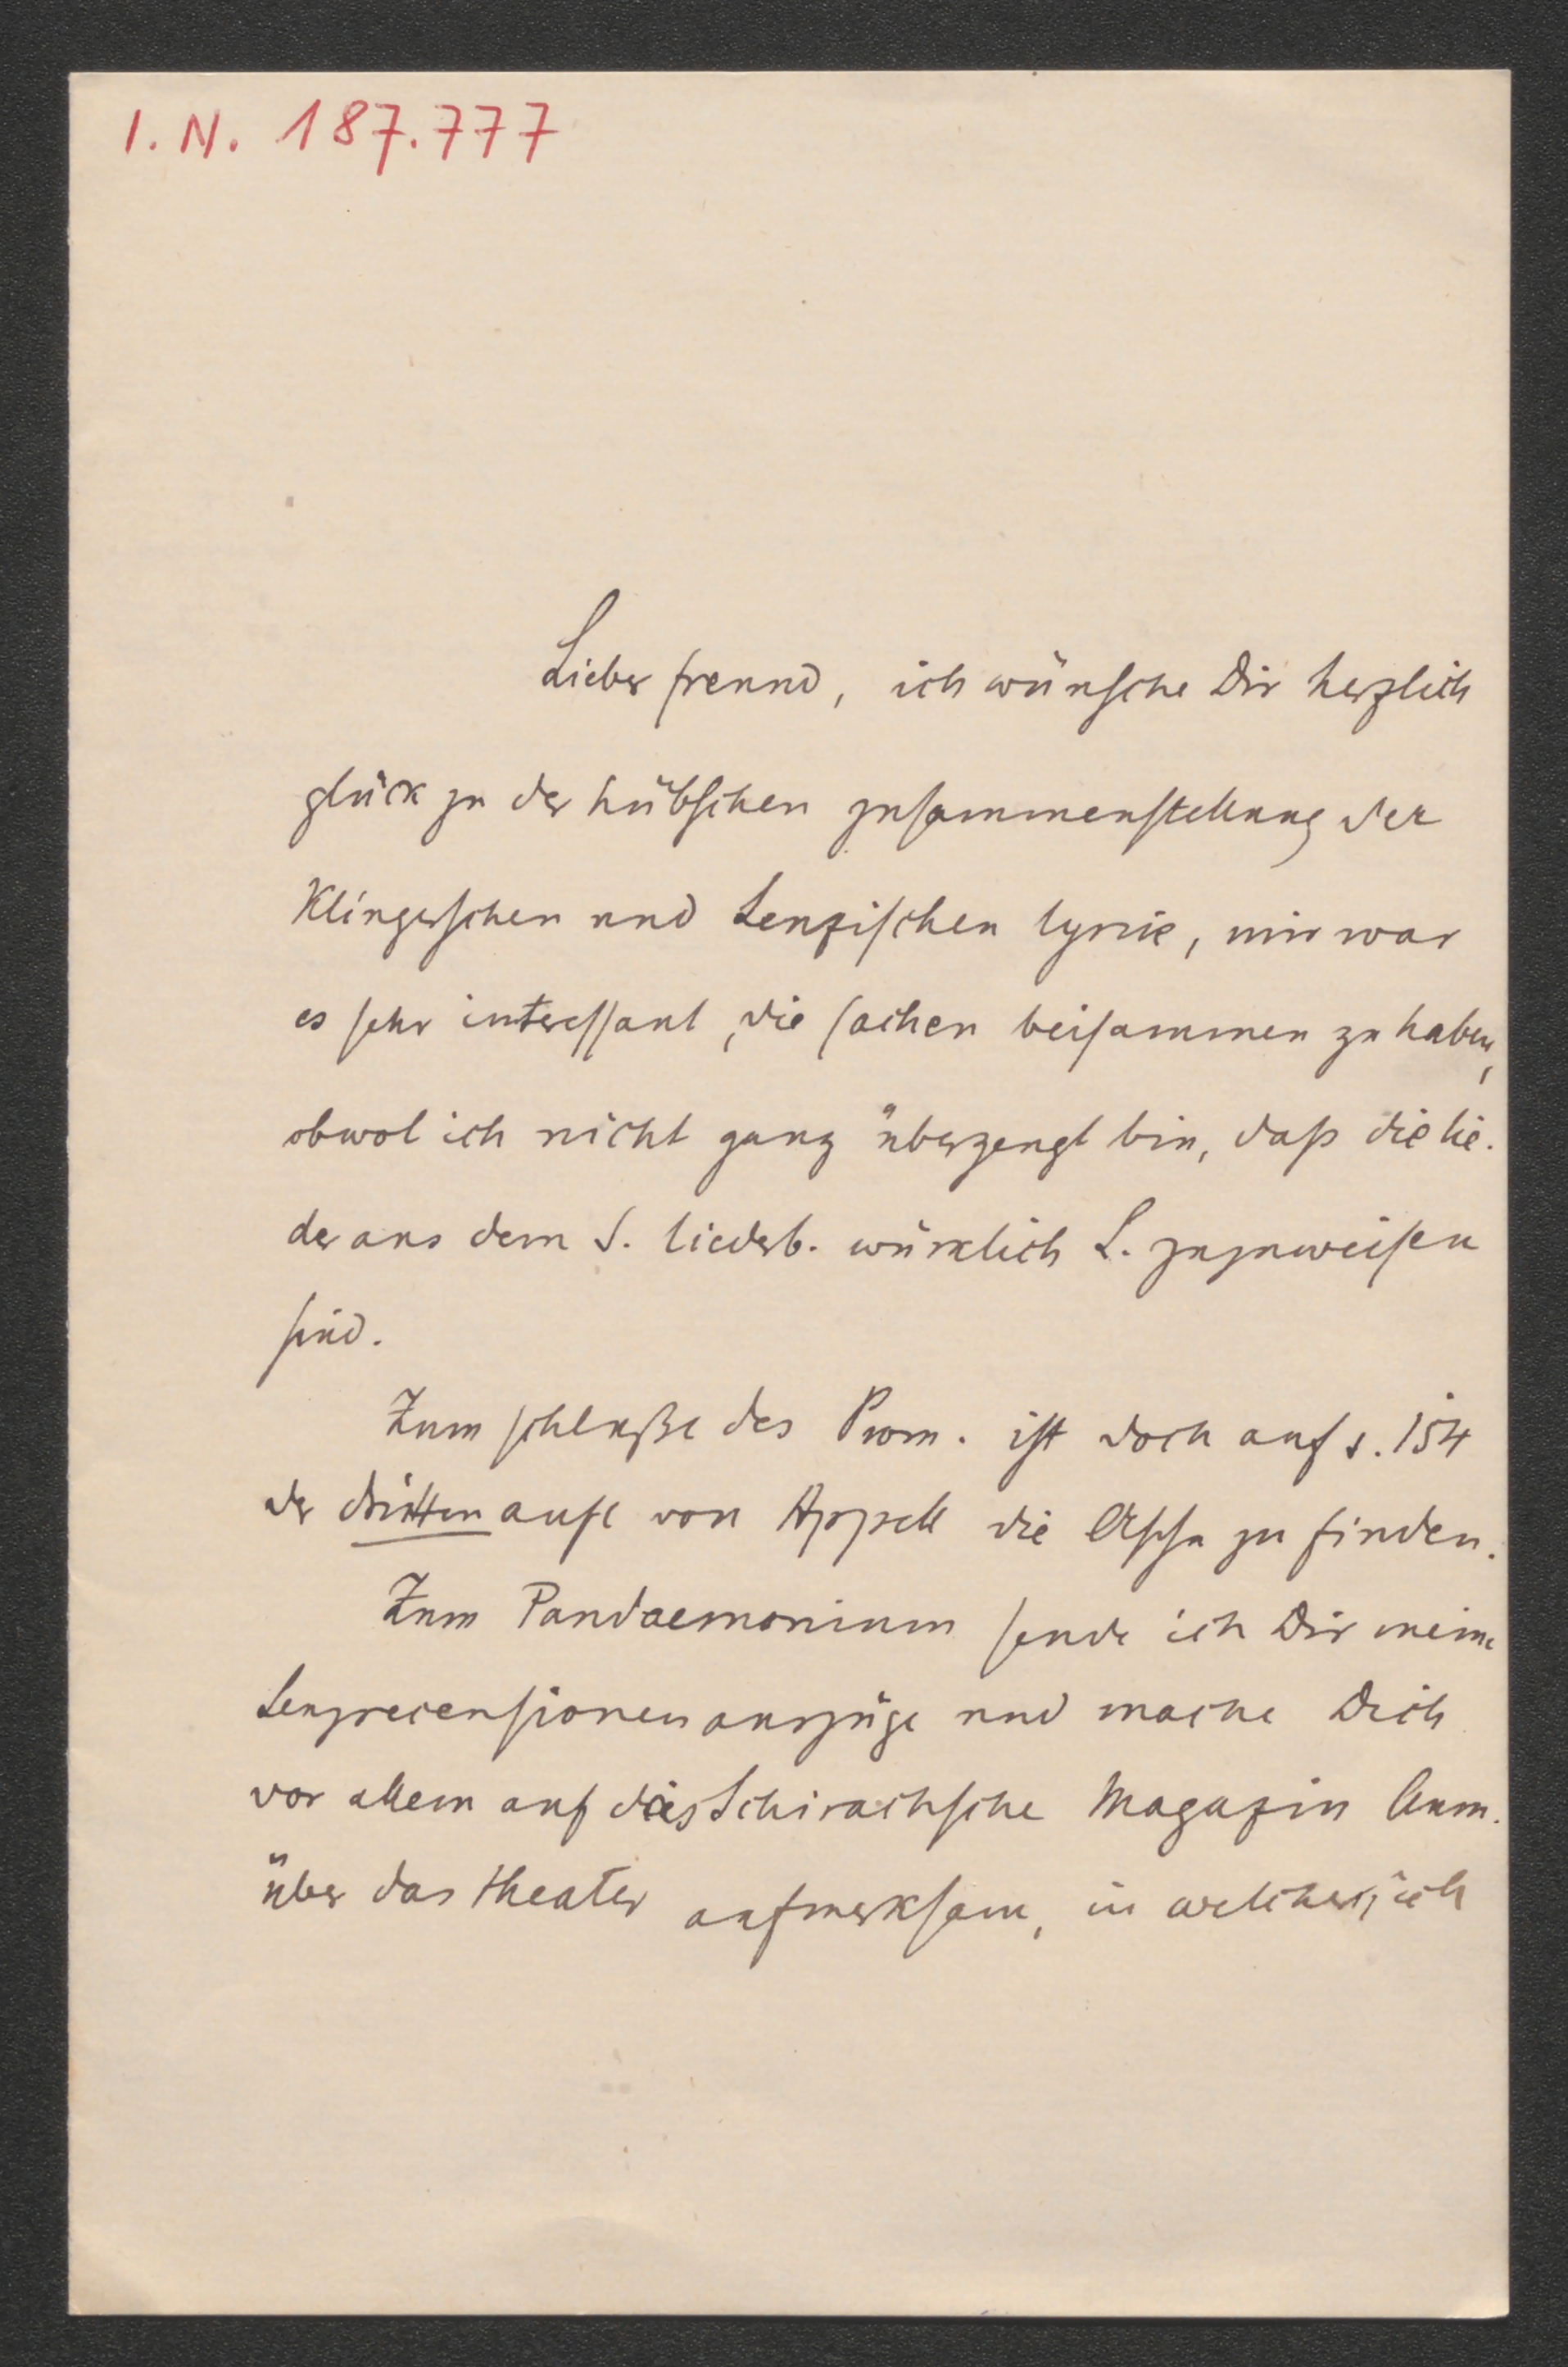 I. N. 187.777
Lieber freund, ich wünsche Dir herzlich
glück zu der hübschen zusammenstellung der
Klingerschen und Lenzischen lyrik, mir war
es sehr interessant, die sachen beisammen zu haben,
obwol ich nicht ganz überzeugt bin, daß die lie-
der aus dem S. liederb. würklich L. zuzuweisen
sind.
Zum schluße des Prom. ist doch auf s. 154
der dritten aufl von Appell die zu finden.
Zum Pandaemonium sende ich Dir meine
Lenzrecensionenauszüge und mache Dich
vor allem auf das Schirachsche Magazin Anm.
über das theater aufmerksam, in welcher, ich